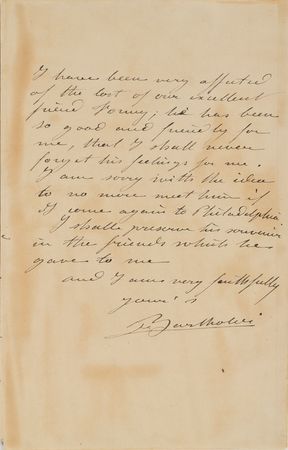 I have been very affected
of the lost of our excellent
friend Forney; he has been
so good and friendly for
me, that I shall never
forget his feelings for me.
I am sory with the idea
to no more met him if
I come again to Philadelphia
I shall preserve his souvenir
in the friends which he
gave to me
and I am very faithfully
your's
Bartholdi